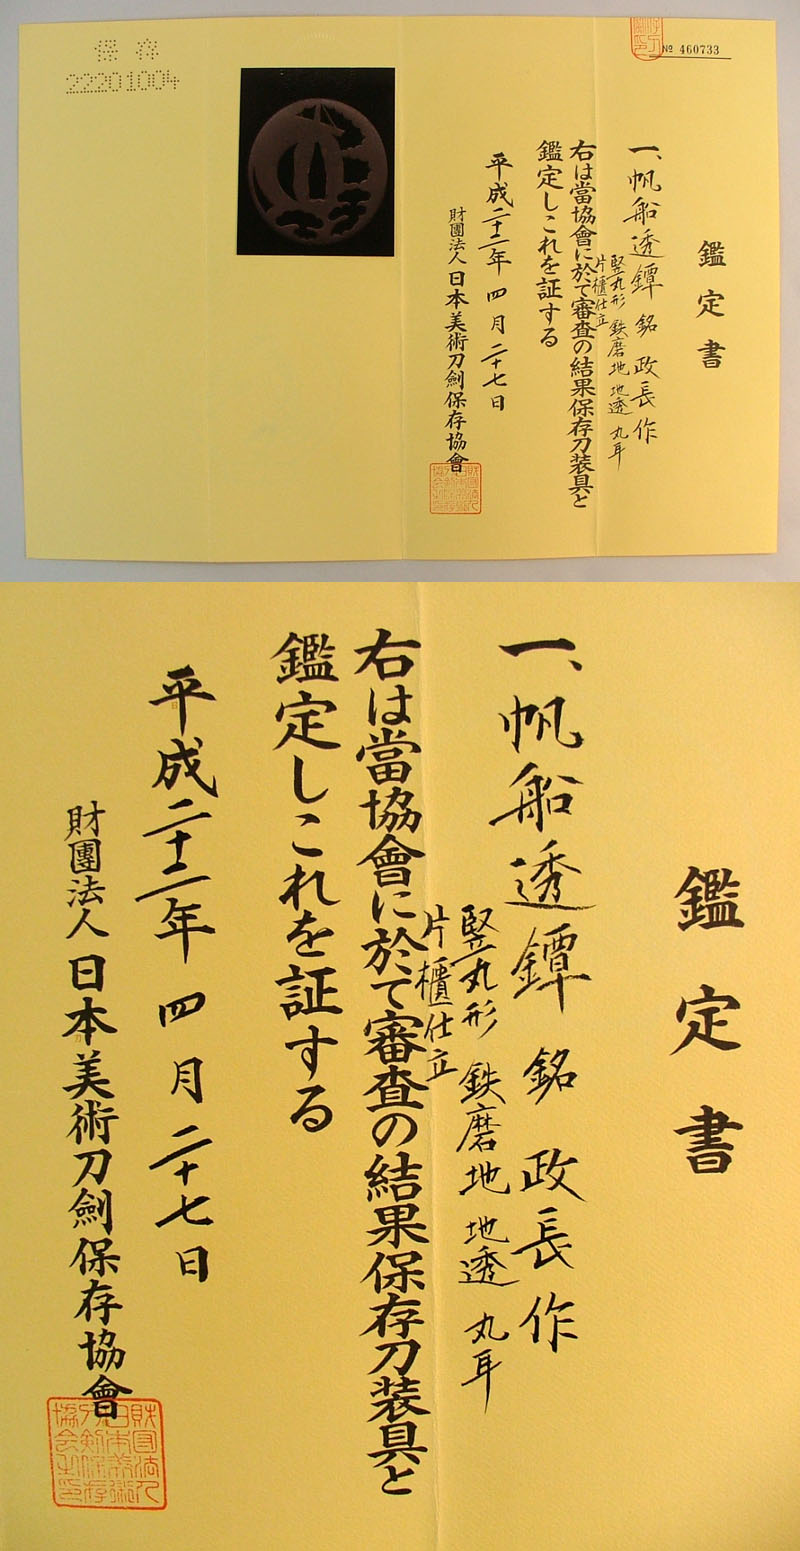 鑑定書
№ 460733
一、帆船透鐔 銘 政長作
竪丸形 鉄磨地 地透 丸耳
片櫃仕立
右は當協會に於て審査の結果保存刀装具と
鑑定しこれを証する
平成二十二年 四月二十七日
財團法人 日本美術刀劍保存協會
保存
22201004
鑑定書
一、帆船透鐔 銘 政長作
竪丸形 鉄磨地 地透 丸耳
片櫃仕立
右は當協會に於て審査の結果保存刀装具と
鑑定しこれを証する
平成二十二年 四月二十七日
財團法人 日本美術刀劍保存協會